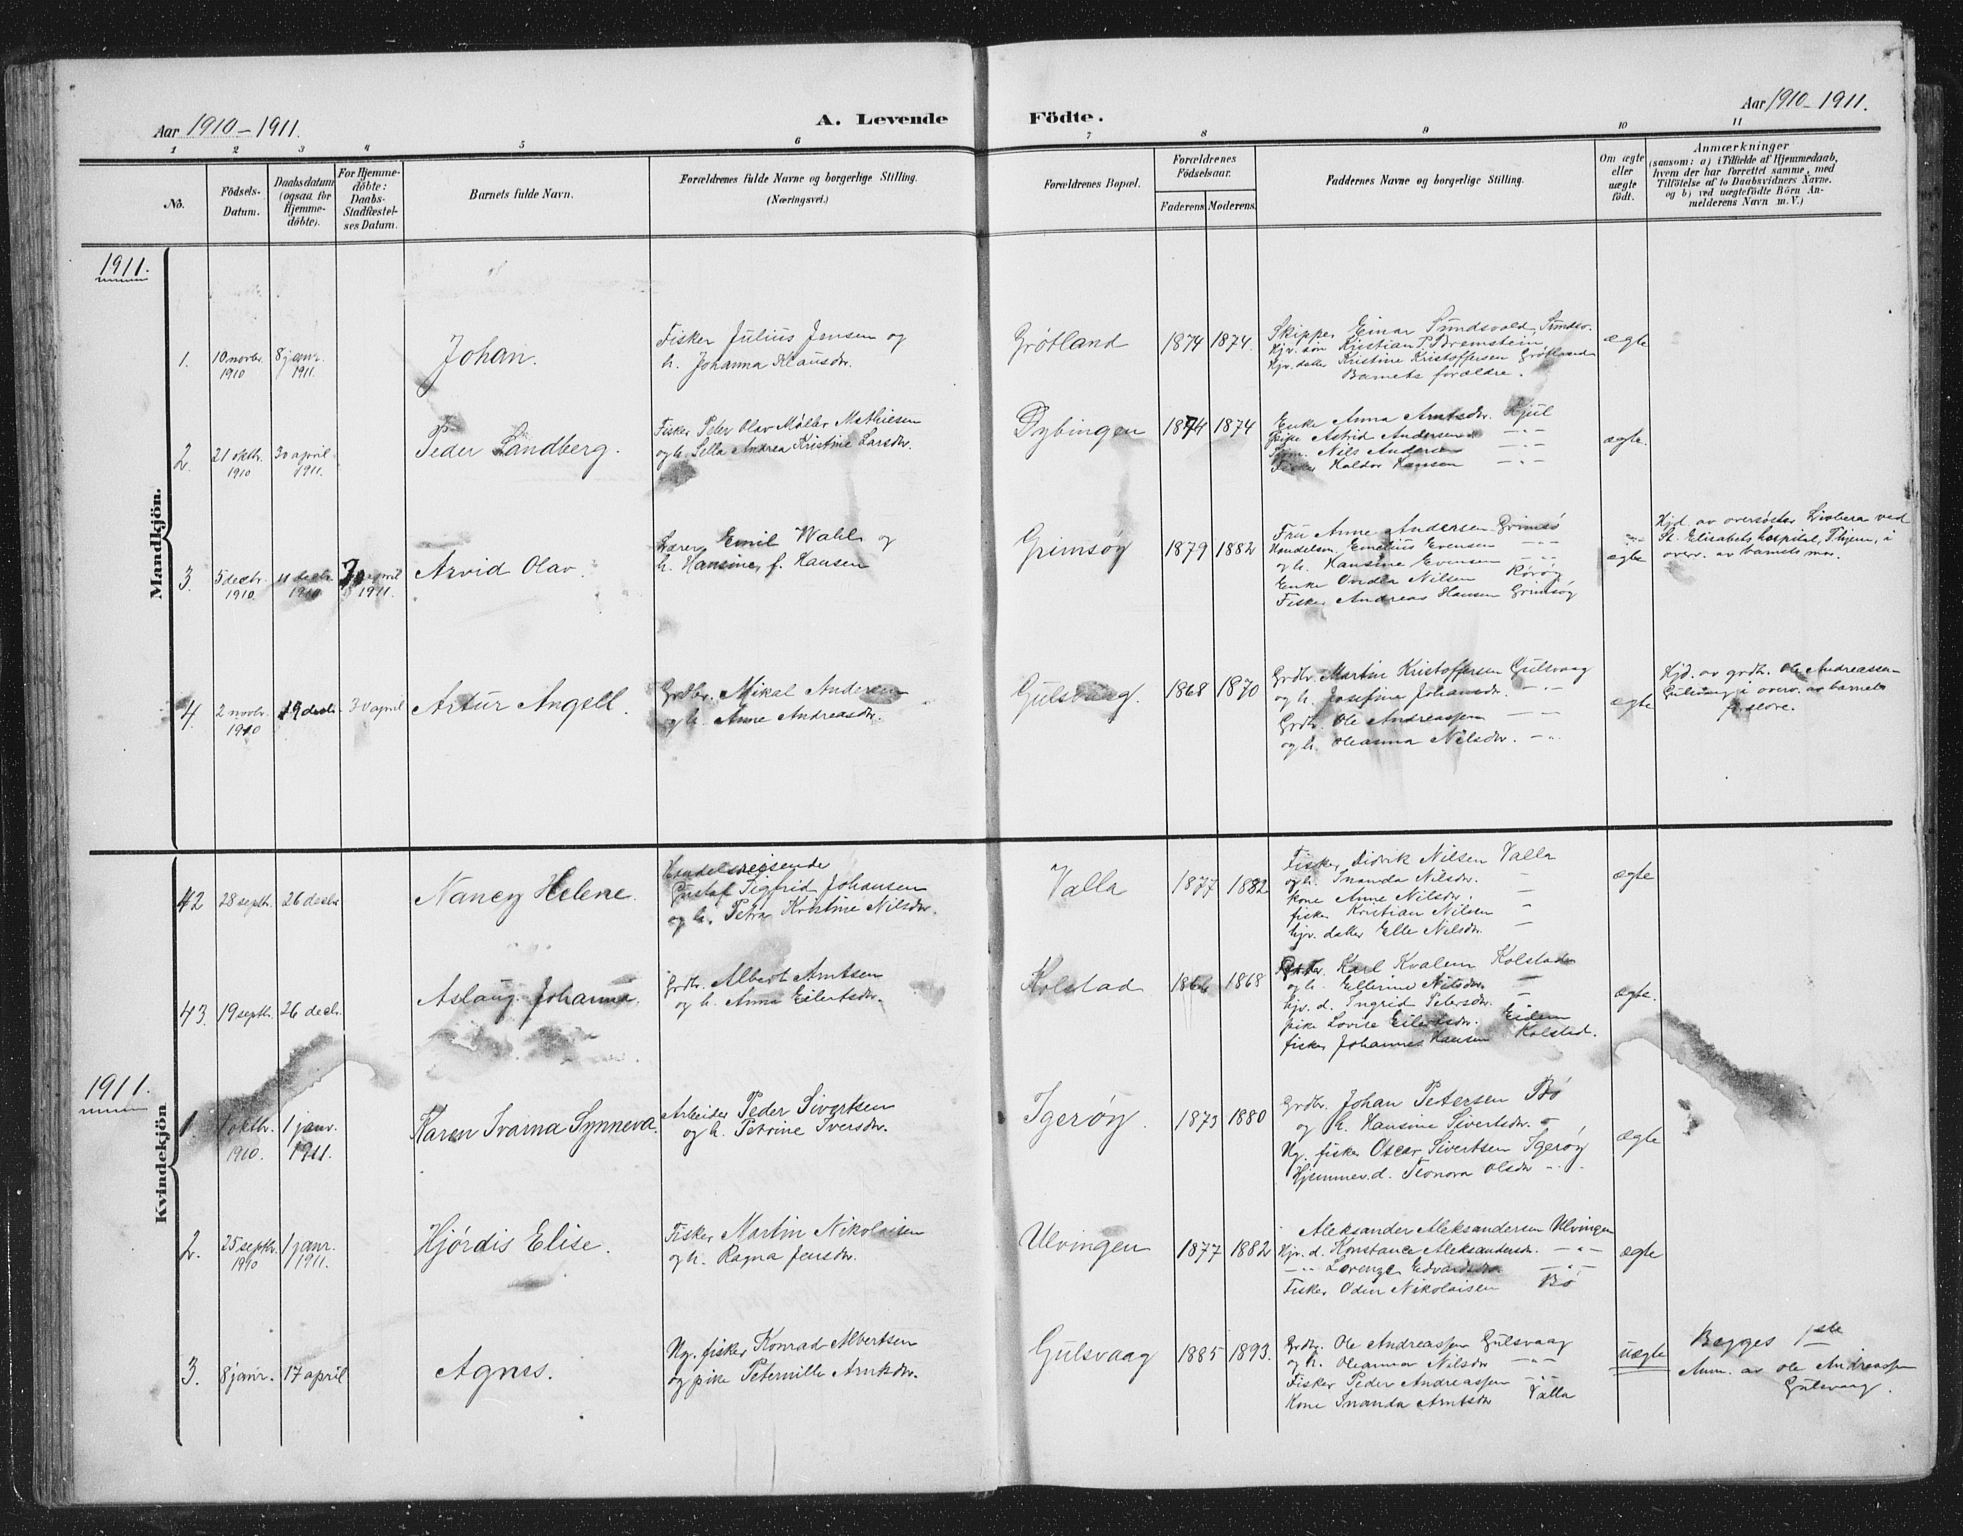 Aar 1910-1911.
A. Levende Födte.
Aar 1910-1911.
1 2 3 4 5 6 7 8 9 10 11
No.
Födsels-Datum.
Daabsdatum (ogsaa for Hjemme-döbte).
For Hjemme-döbte: Daabs-Stadfæstel-ses Datum.
Barnets fulde Navn.
Forældrenes fulde Navne og borgerlige Stilling.
(Næringsvei.)
Forældrenes Bopæl.
Forældrenes Födselsaar.
Faderens. Moderens.
Faddernes Navne og borgerlige Stilling.
Om ægte eller uægte födt.
Anmærkninger
(saasom: a) i Tilfælde af Hjemmedaab, hvem der har forrettet samme, med Tilföielse af to Daabsvidners Navne. og b) ved uægtefödte Börn An-melderens Navn m. V.)
1911.
Mandkjön.
1. 10 novbr. 1910 8 janr. 1911. Johan.
Fisker Julius Jensen og
h. Johanna Klausdtr.
Grøtland 1874 1874.
Skipper Einar Sundsvold, Sundsv.
Hjv. søn Kristian P. Bremstein,
Hjv. datter Kristine Kristoffersen Grøtland
Barnets forældre.
ægte
2. 21 oktbr. 1910 30 april 1911. Peder Landberg.
Fisker Peter Olav Møller Mathiesen
og h. Sella Andrea Kristine Larsdtr.
Dybingen 1874 1874
Enke Anna Arntsdtr. Kjul
pike Astrid Andersen -"-
Tøm. Nils Andersen -"-
Fisker Haldor Hansen -"-
ægte
3. 5 decbr. 1910 11 decbr. 1910 30 april 1911. Arvid Olav.
Lærer Emil Wahl og
h. Hansine, f. Hansen
Grimsøy 1879 1882
Fru Anne Andersen Grimsø
Handelsm. Emelius Evensen -"-
og h. Hansine Evensen -"-
Enke Ovidia Nilsen Rørøy
Fisker Andreas Hansen Grimsøy
ægte
Hjd. av oversøster Livbera ved
St. Elisabets hospital, Thjem, i
overv. av barnets mor.
4. 2 novbr. 1910 19 decbr 30 april Artur Angell.
Grdbr. Mikal Andersen
og h. Anne Andreasdtr.
Gulsvaag. 1868 1870
Grdbr. Martin Kristoffersen Gulsvaag
og h. Josefine Johansdtr. -"-
Grdbr. Ole Andreassen -"-
og h. Oleanna Nilsdtr. -"-
ægte
Hjd. av grdbr. Ole Andreassen
Gulsvaag i overv. av barnets
forældre.
42 28 septbr. 26 decbr Nancy Helene.
Handelsreisende
Gustaf Sigfrid Johansen
og h. Petra Kristine Nilsdtr.
Valla 1877 1882
Fisker Didrik Nilsen Valla
og h. Inanda Nilsdtr. "
kone Anne Nilsdtr. "
fisker Kristian Nilsen "
hjv. datter Elle Nilsdtr. "
ægte
43. 19 septbr. 26 decbr. Aslaug Johanna.
Grdbr. Albert Arntsen
og h. Anna Eilertsdtr.
Kolstad 1866 1868
Grdbr. Karl Kvalem Kolstad
og h. Ellerine Nilsdtr. "
hjv. d. Ingrid Petersdtr. "
pike Lovise Eilertsdtr. Eidem
fisker Johannes Hansen Kolstad.
ægte.
1911.
Kvindekjön
1 1 oktbr. 1910. 1 janr. 1911. Karen Ivarna Synneva.
Arbeider Peder Sivertsen
og h. Petrine Iversdtr.
Igerøy. 1873 1880
Grdbr. Johan Petersen Bø
og h. Hansine Sivertsdtr. "
Ug. fisker Oscar Sivertsen Igerøy
Hjemmev. d. Leonora Olsdtr -"-
ægte
2. 25 septbr. 1910 1 janr. 1911. Hjørdis Elise.
Fisker Martin Nikolaisen
og h. Ragna Jensdtr.
Ulvingen 1877 1882
Aleksander Aleksandersen Ulvingen
Hjv. d. Konstance Aleksandersdtr. -"-
-"- Lorense Edvardsdtr. -"-
Fisker Odin Nikolaisen Bø
ægte
3. 8 janr. 17 april Agnes.
Ug. fisker Konrad Albertsen
og pike Peternille Arntsdtr.
Gulsvaag 1885 1893.
Grdbr. Ole Andreassen Gulsvaag
og h. Oleanna Nilsdtr -"-
Fisker Peder Andreassen -"-
Kone Inanda Arntsdtr Valla
uægte
Begges 1ste
Anm. av Ole Andreassen
Gulsvaag.